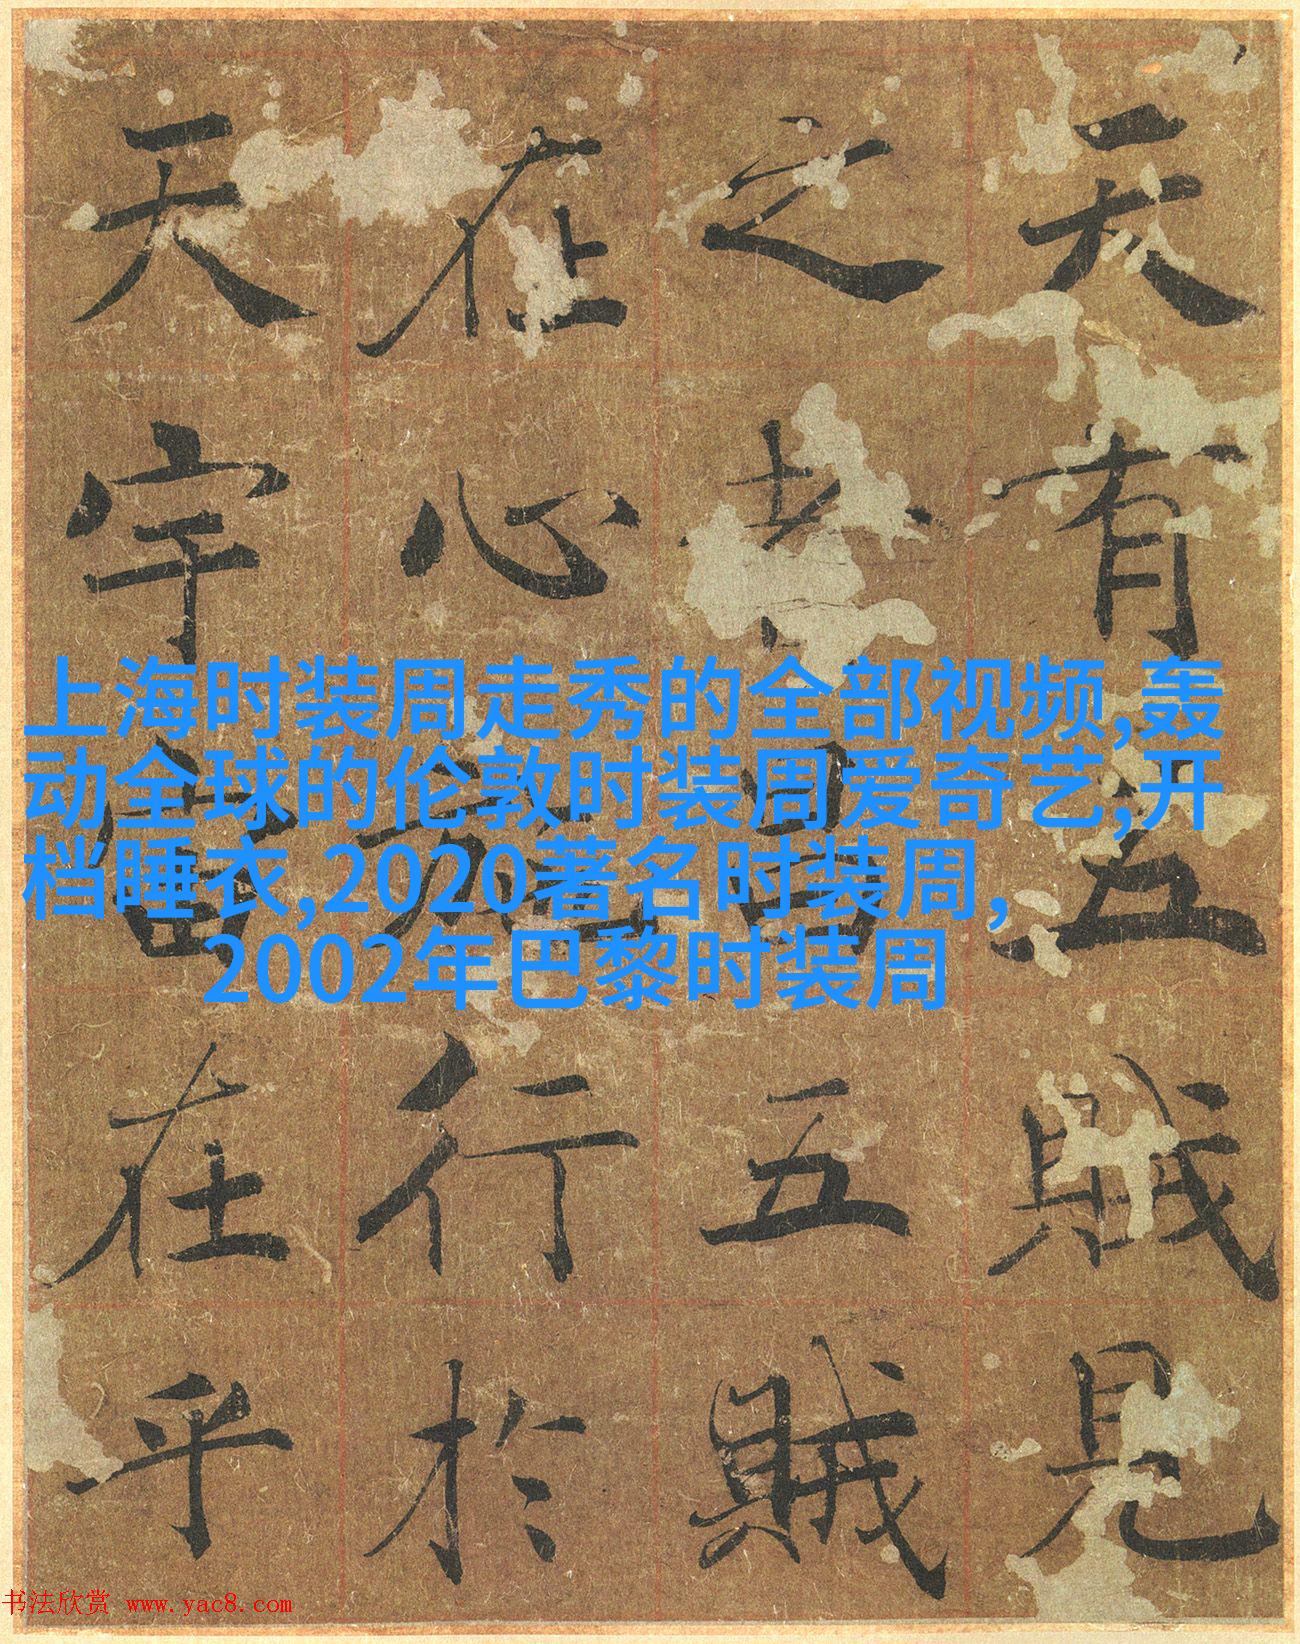 天有五賊見
之者昌五賊
在心施行於
天宇宙在乎
上海时装周走秀的全部视频,轰
动全球的伦敦时装周爱奇艺,开
档睡衣,2020著名时装周,
2002年巴黎时装周
书法欣赏 www.yac8.com